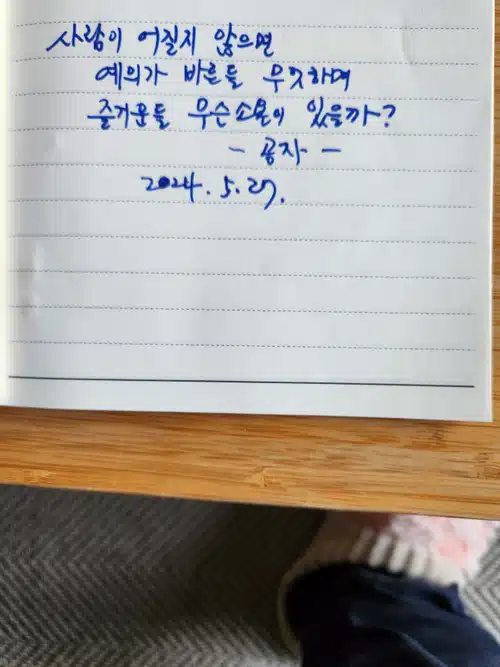 사람이 어질지 않으면
예의가 바른들 무엇하며
즐거운들 무슨소용이 있을까?
- 공자 -
2024. 5. 27.